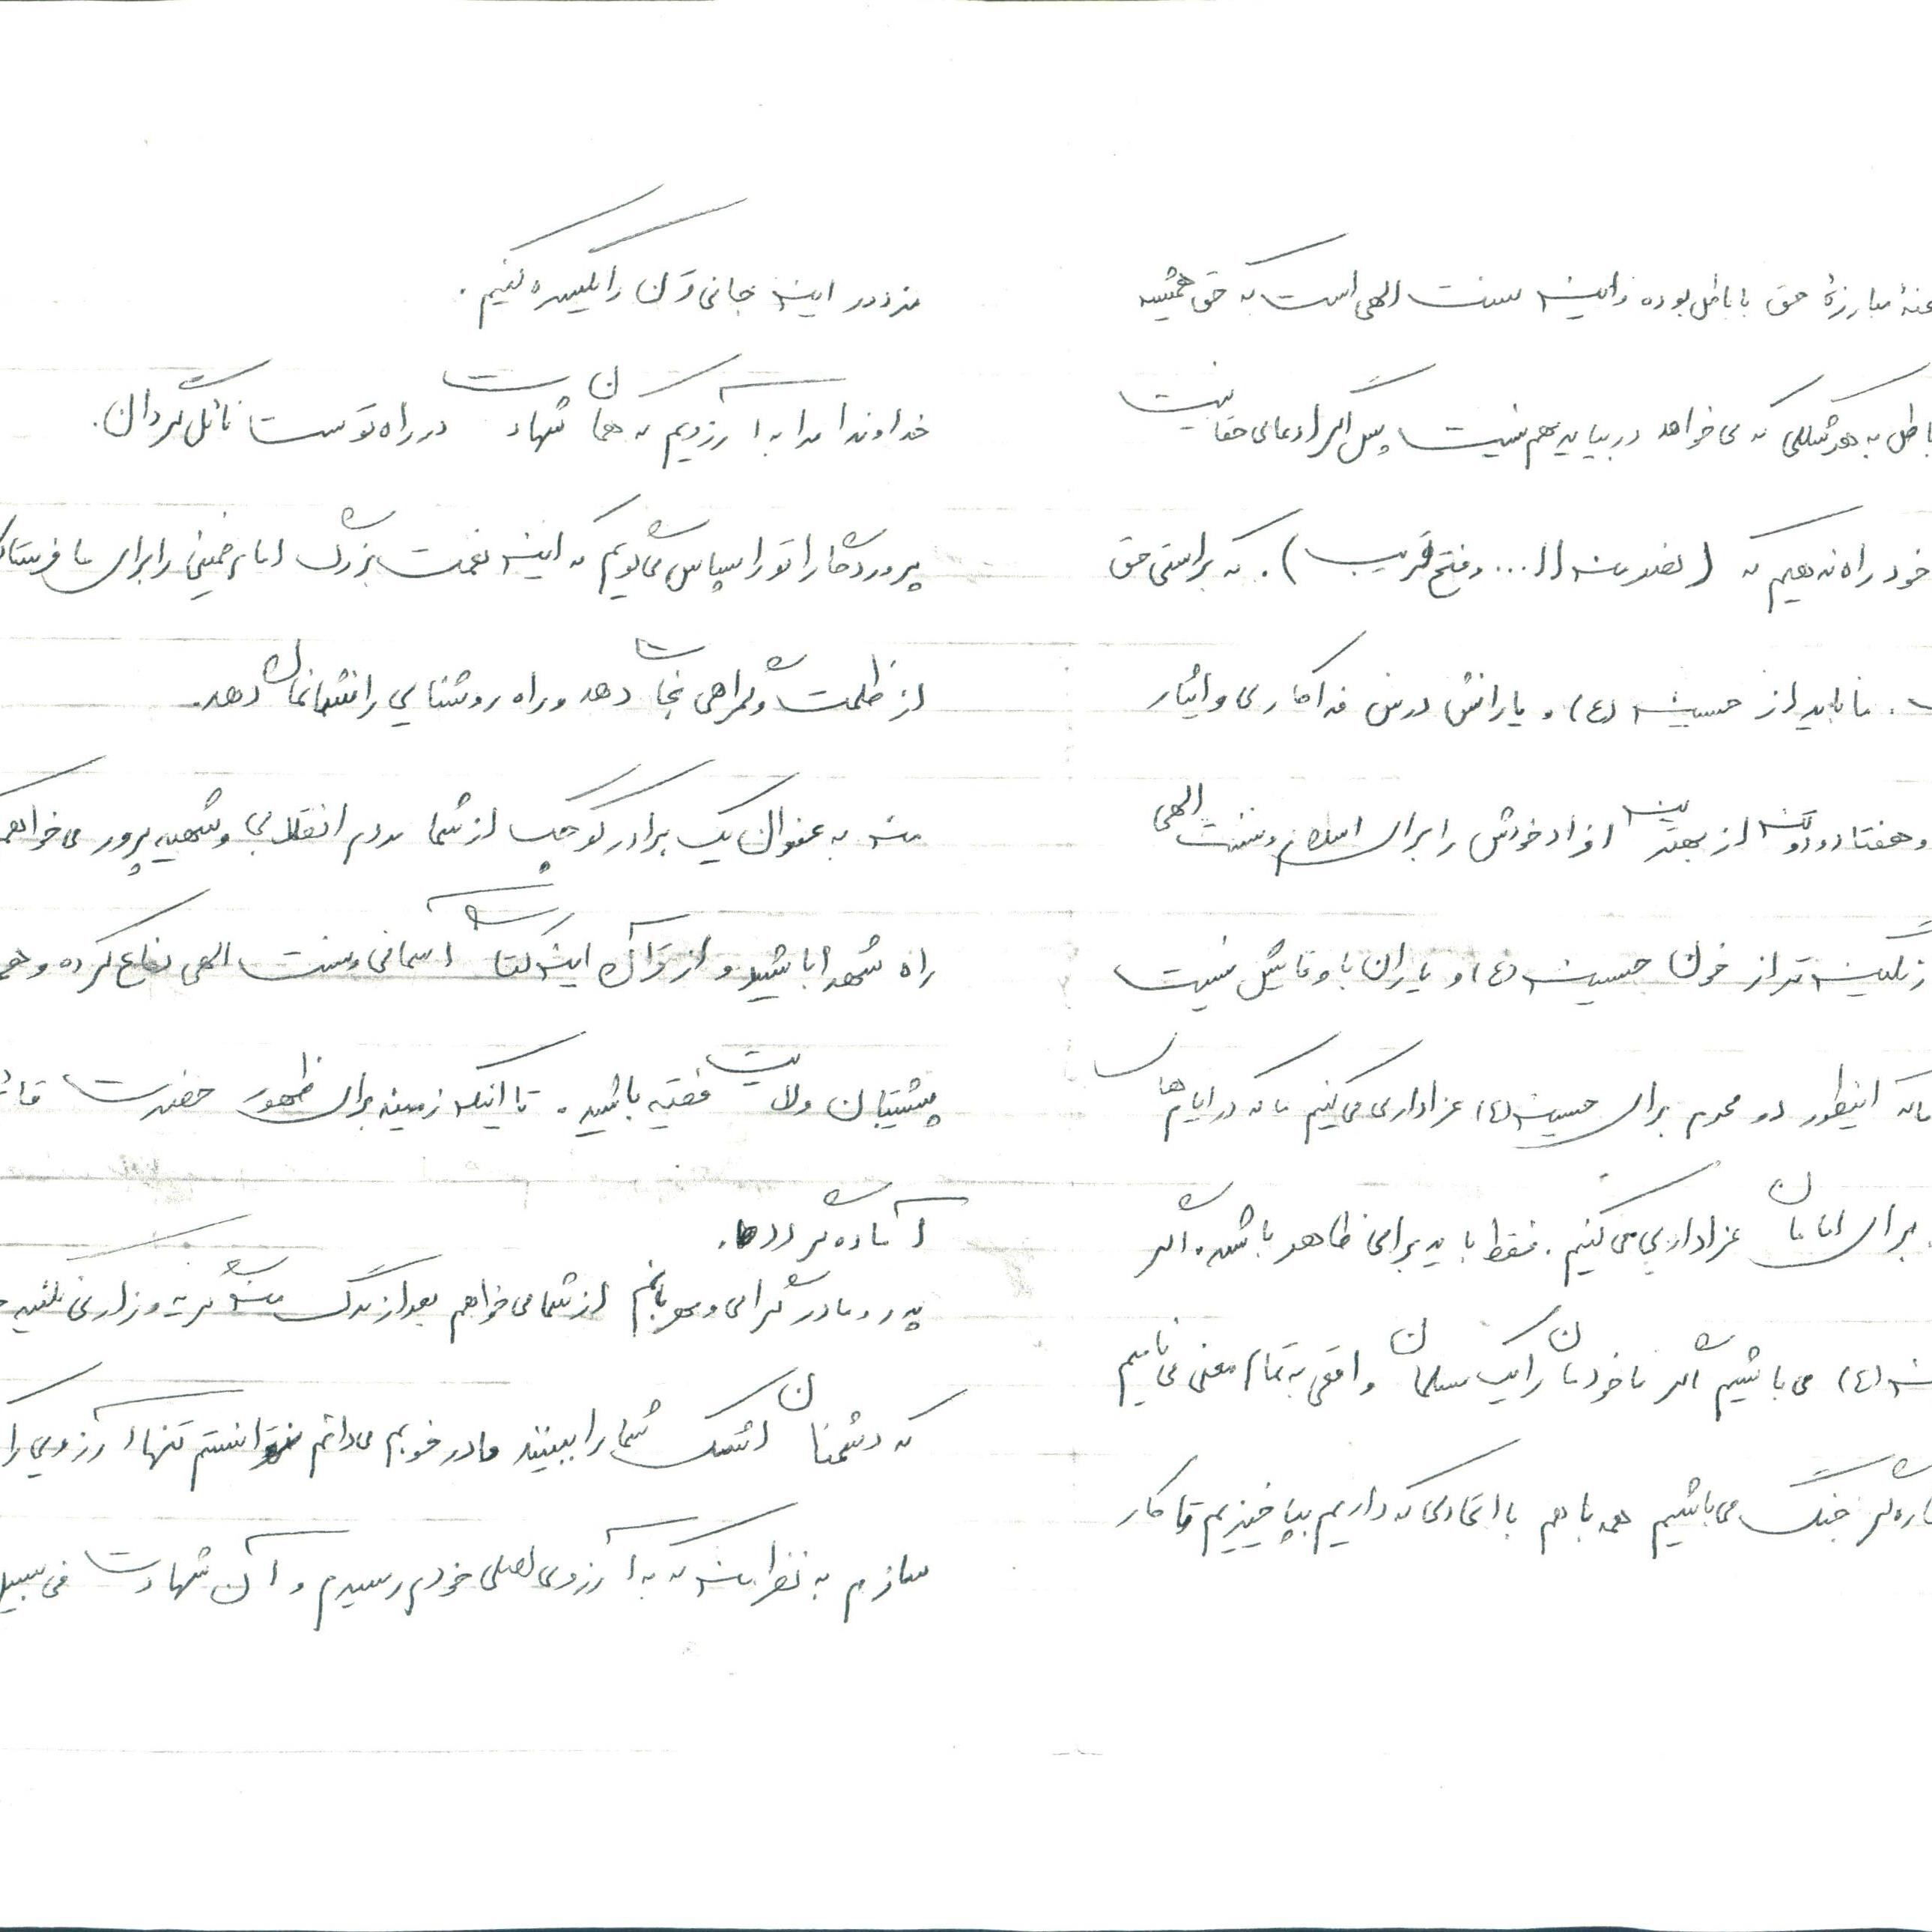 مبارزهٔ حق با باطل بوده و این سنت الهی است که حق همیشه
باطل به هر شکلی که می‌خواهد دربیاید مهم نیست پس اگر ادعای حقانیت
خود راه ندهیم که (نصر من ا... و فتح قریب). که براستی حق
ما باید از حسین (ع) و یارانش درس فداکاری و ایثار
و هفتاد و دو تن از بهترین افراد خودش را برای اسلام و سنت الهی
رنگین تر از خون حسین (ع) و یاران با وفایش نیست
ما که اینطور در محرم برای حسین (ع) عزاداری می‌کنیم ما که در ایام‌های
برای امامان عزاداری می‌کنیم. فقط باید برای ظاهر باشد. اگر
(ع) می‌باشیم اگر ما خودمان را یک مسلمان واقعی به تمام معنی می‌نامیم
جنگ می‌باشیم همه با هم با اتحادی که داریم بپا خیزیم تا کار
مزدور این جانی قرن را یکسره کنیم.
خداوندا مرا به آرزویم که همان شهادت در راه توست نائل گردان.
پروردگارا تو را سپاس می‌گویم که این نعمت بزرگ امام خمینی را برای ما
از ظلمت و گمراهی نجات دهد و راه روشنایی را نشانمان دهد.
من به عنوان یک برادر کوچک از شما مردم انقلابی و شهید پرور می‌خواهم
راه شهدا باشید و از قرآن این کتاب آسمانی و سنت الهی دفاع کرده
پشتیبان ولایت فقیه باشید. تا اینکه زمینه برای ظهور حضرت
آماده گردد.
پدر و مادر گرامی و مهربانم از شما می‌خواهم بعد از مرگ من گریه و زاری نکنید
که دشمنان اشک شما را ببینند مادر خوبم می‌دانم نتوانستم تنها آرزوی
سازم به نظر من که به آرزوی اصلی خودم رسیدم و آن شهادت فی